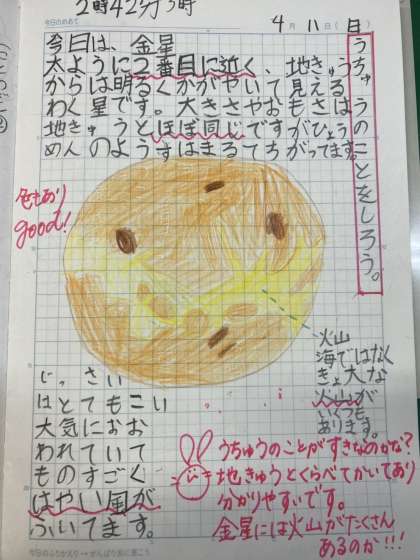 2時42分3時
今日のめあて
4月11日(日)
うちゅうのことをしろう。
今日は、金星
太ように2番目に近く、地きゅう
からは明るくかがやいて見える
わく星です。大きさやおもさは
地きゅうとほぼ同じですがひょう
めんのようすはまるでちがってます。
色もあり
good!
火山
海ではなく
きょ大な
火山が
いくつも
あります。
じっさい
はとてもこい
大気におお
われていて
ものすごく
はやい風が
ふいてます。
うちゅうのことがすきなのかな?
地きゅうとくらべてかいており
分かりやすいです。
金星には火山がたくさん
あるのか!!!
今日のふりかえり→がんばりあに書こう